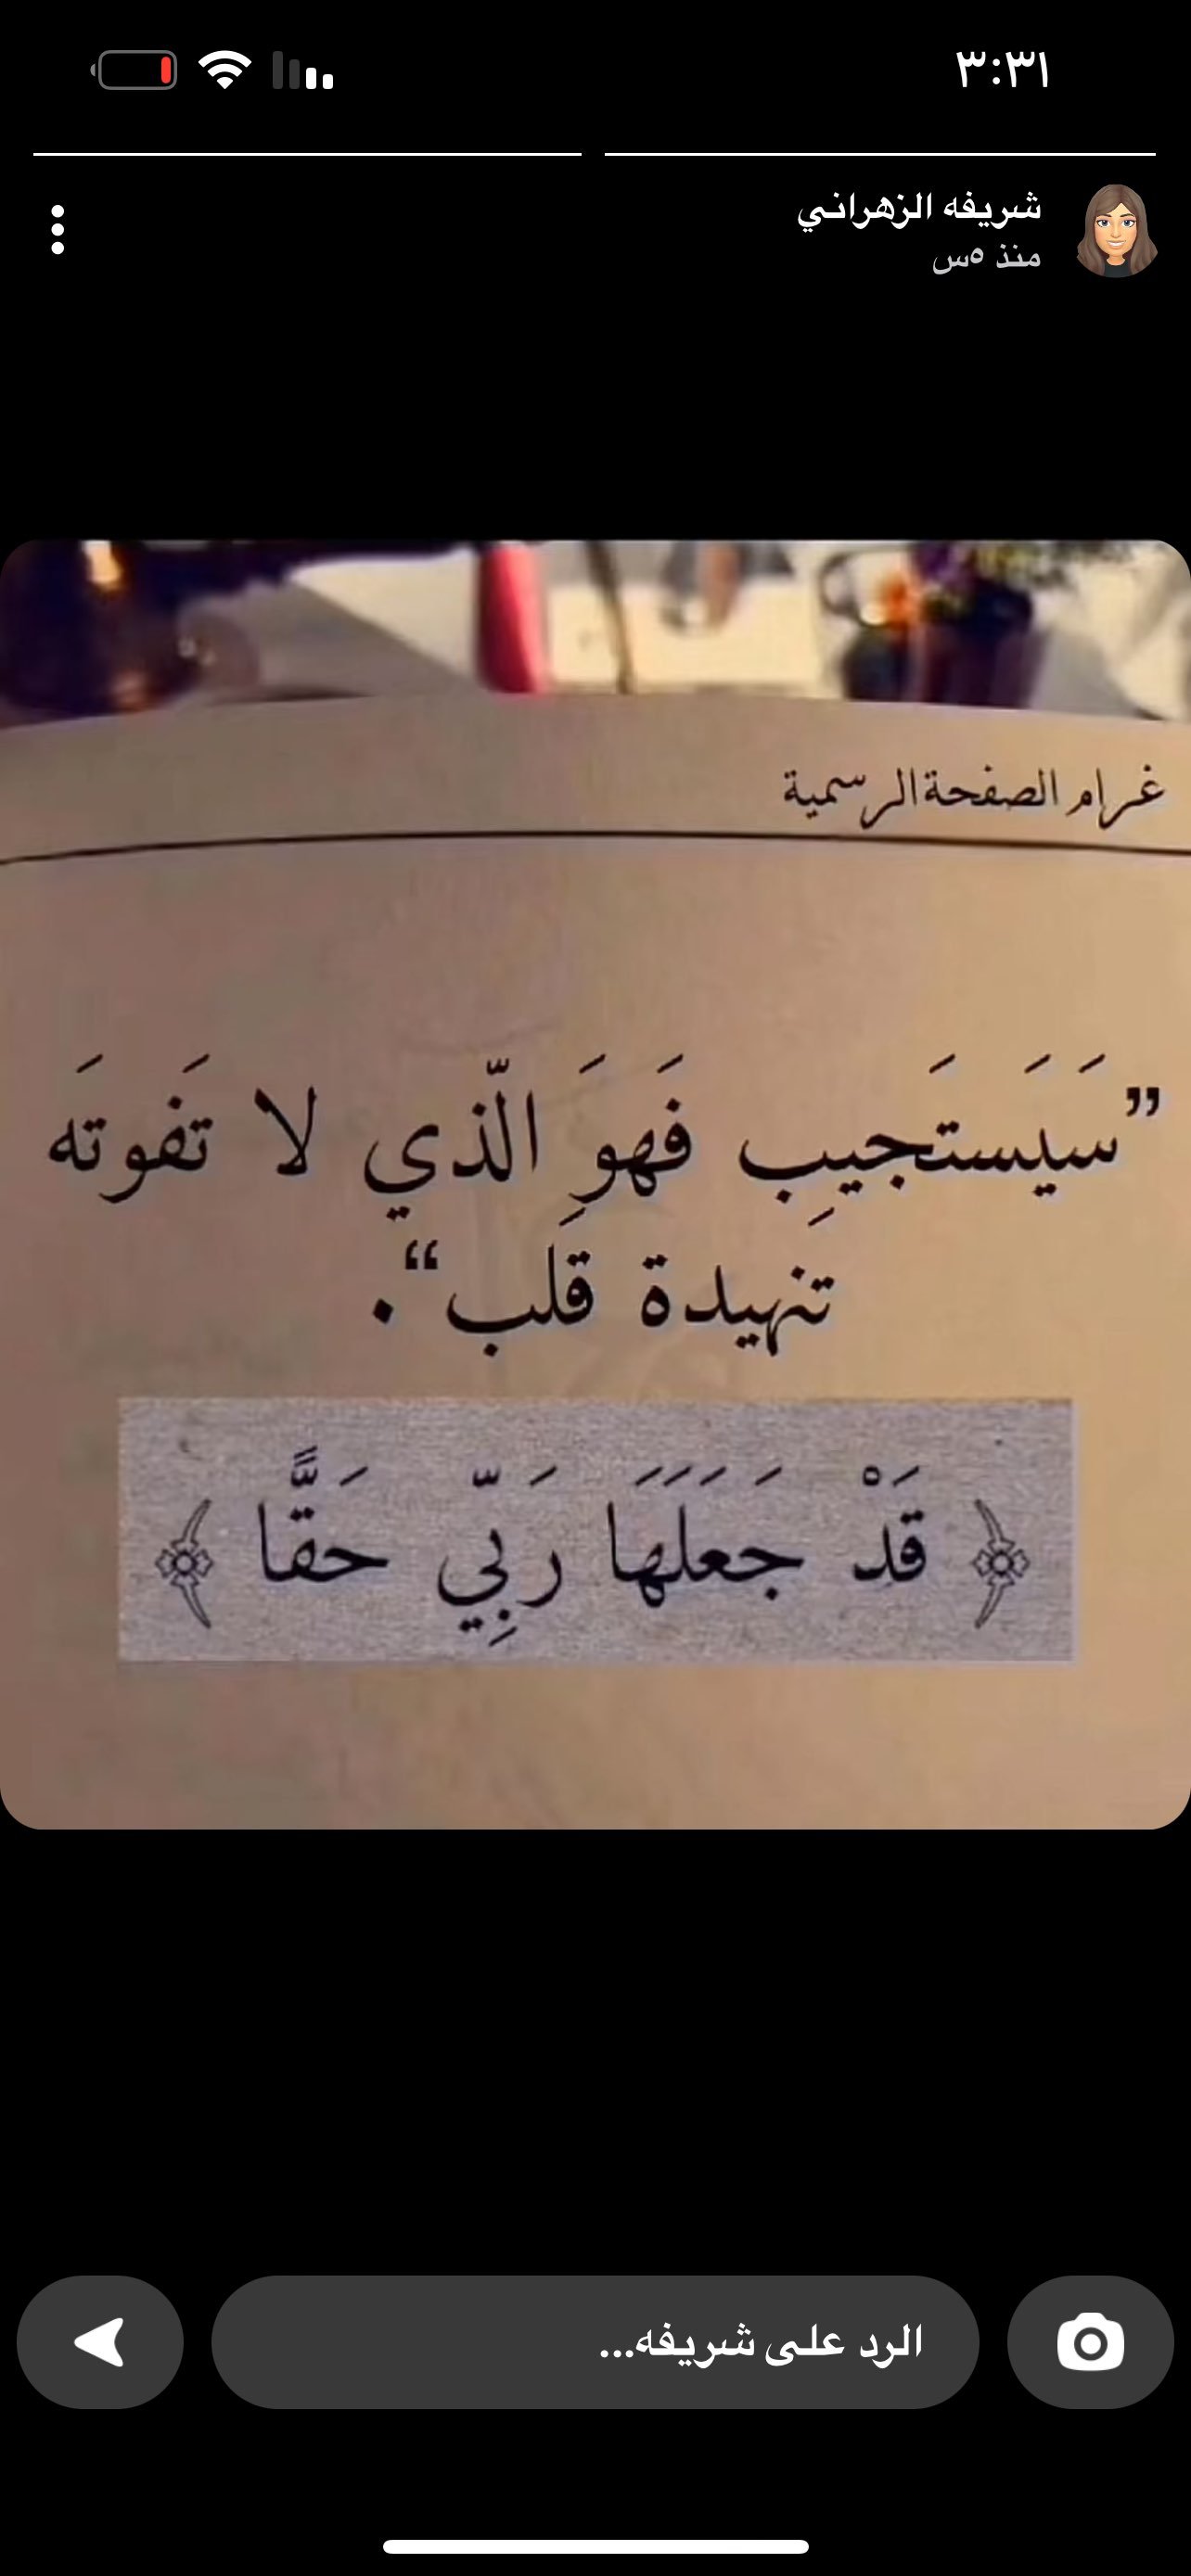 ٣:٣١
شريفه الزهراني
منذ ٥س
غرام الصفحة الرسمية
”سَيَستَجيِب فهَوَ الّذي لا تَفوتَه
تنهيدة قَلب“.
﴿ قَدْ جَعَلَهَا رَبِّي حَقًّا ﴾
الرد على شريفه...